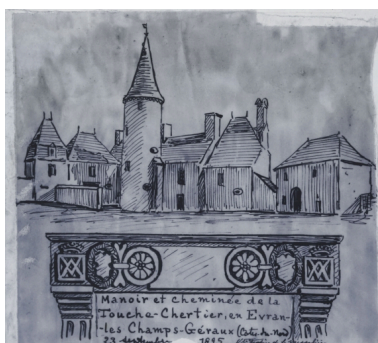 Manoir et cheminée de la
Touche-Chertier, en Evran-
-les Champs-Géraux (Côtes-du-Nord)
23 1895